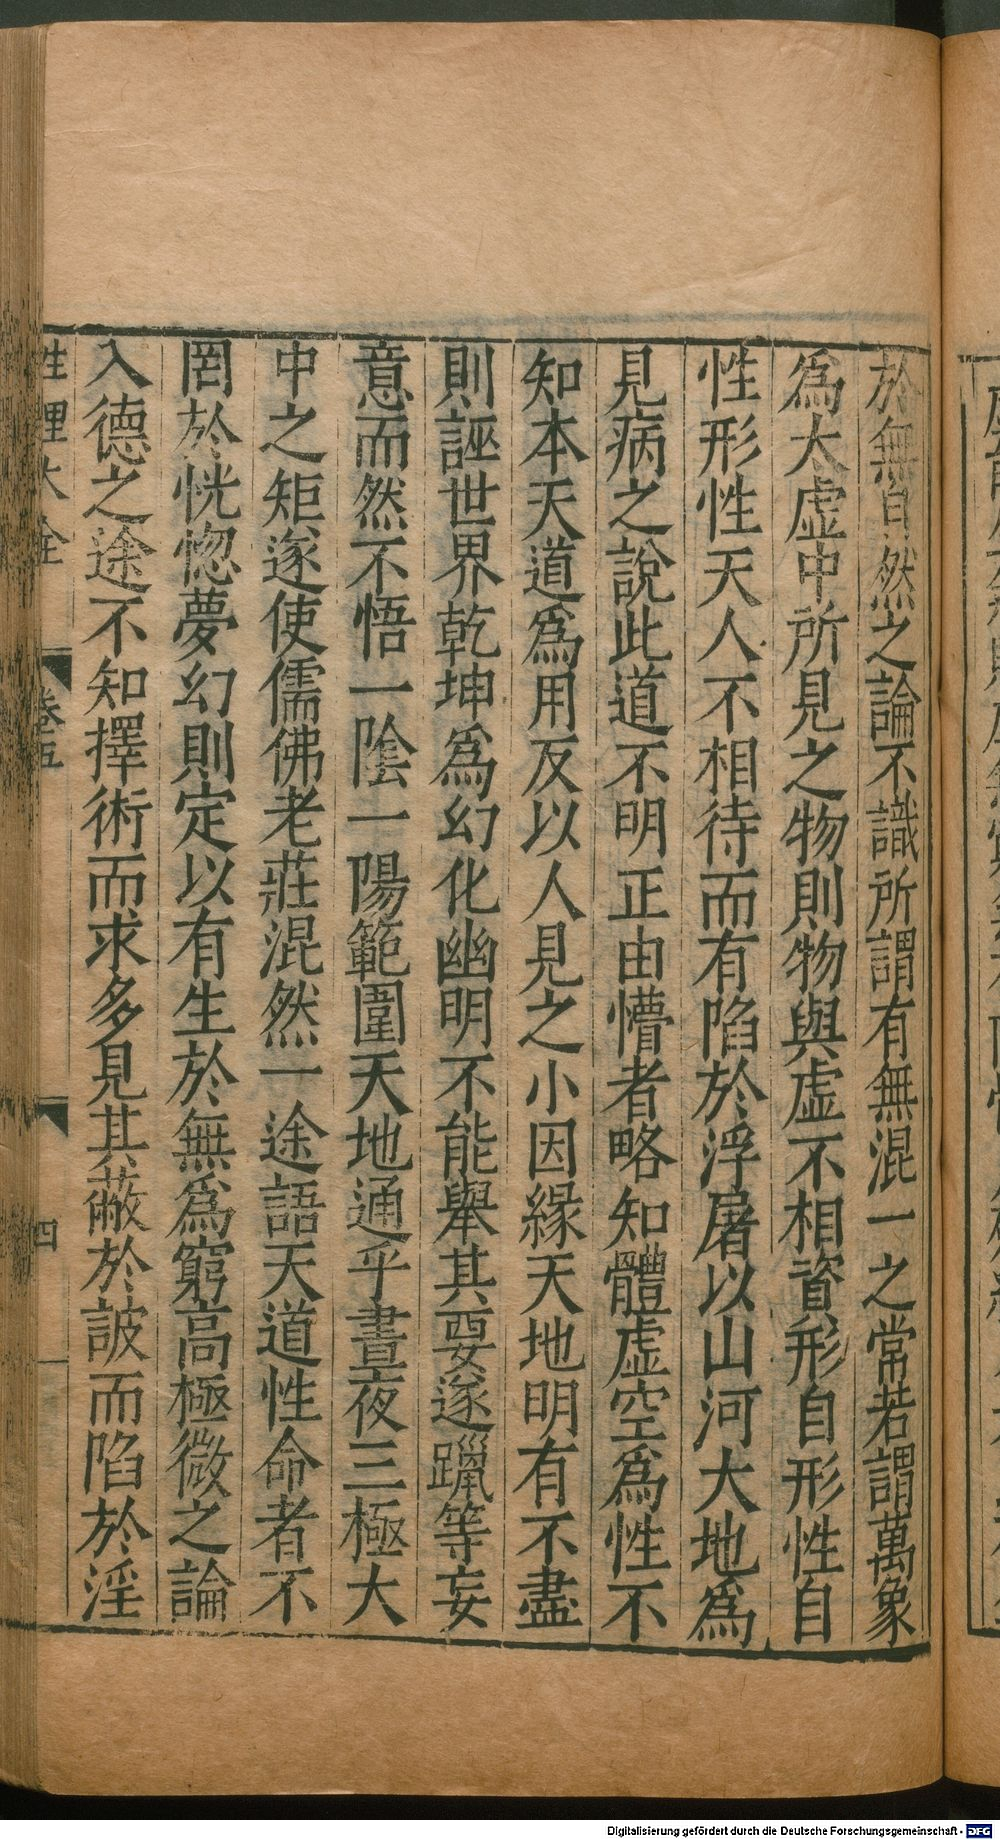 於無自然之論不識所謂有無混一之常若謂萬象
為大虛中所見之物則物與虛不相資形自形性自
性形性天人不相待而有陷於浮屠以山河大地為
見病之說此道不明正由懵者略知體虛空為性不
知本天道為用反以人見之小因緣天地明有不盡
則誣世界乾坤為幻化幽明不能舉其要遂躐等妄
意而然不悟一陰一陽範圍天地通乎晝夜三極大
中之矩遂使儒佛老莊混然一途語天道性命者不
罔於恍惚夢幻則定以有生於無為窮高極微之論
入德之途不知擇術而求多見其蔽於詖而陷於淫
性理大全 卷五 四
Digitalisierung gefördert durch die Deutsche Forschungsgemeinschaft - DFG